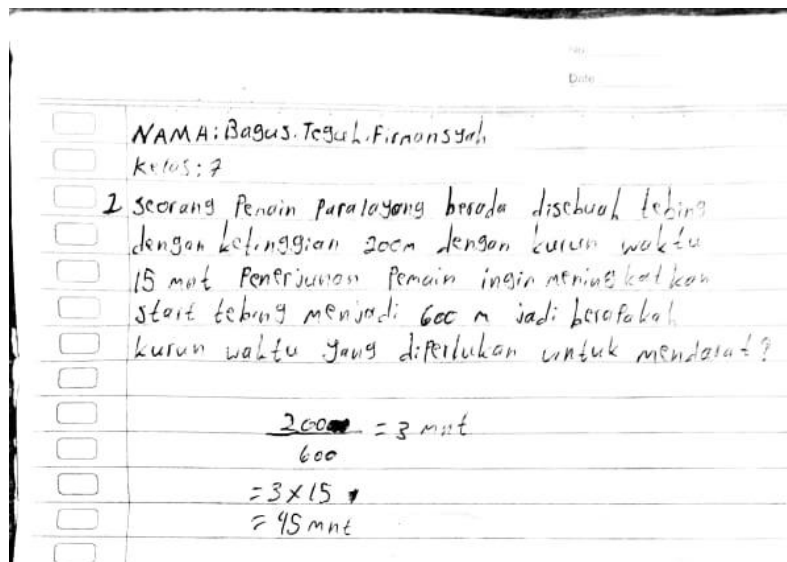 No:
Date:
NAMA: Bagus.Teguh.Firmansyah
Kelas: 7
1 Seorang Pemain Paralayang berada disebuah tebing
dengan ketinggian 200m dengan kurun waktu
15 mnt Penerjunan Pemain ingin meningkatkan
start tebing menjadi 600 m jadi berapakah
kurun waktu yang diperlukan untuk mendarat?
200 = 3 mnt
600
= 3 x 15
= 45 mnt